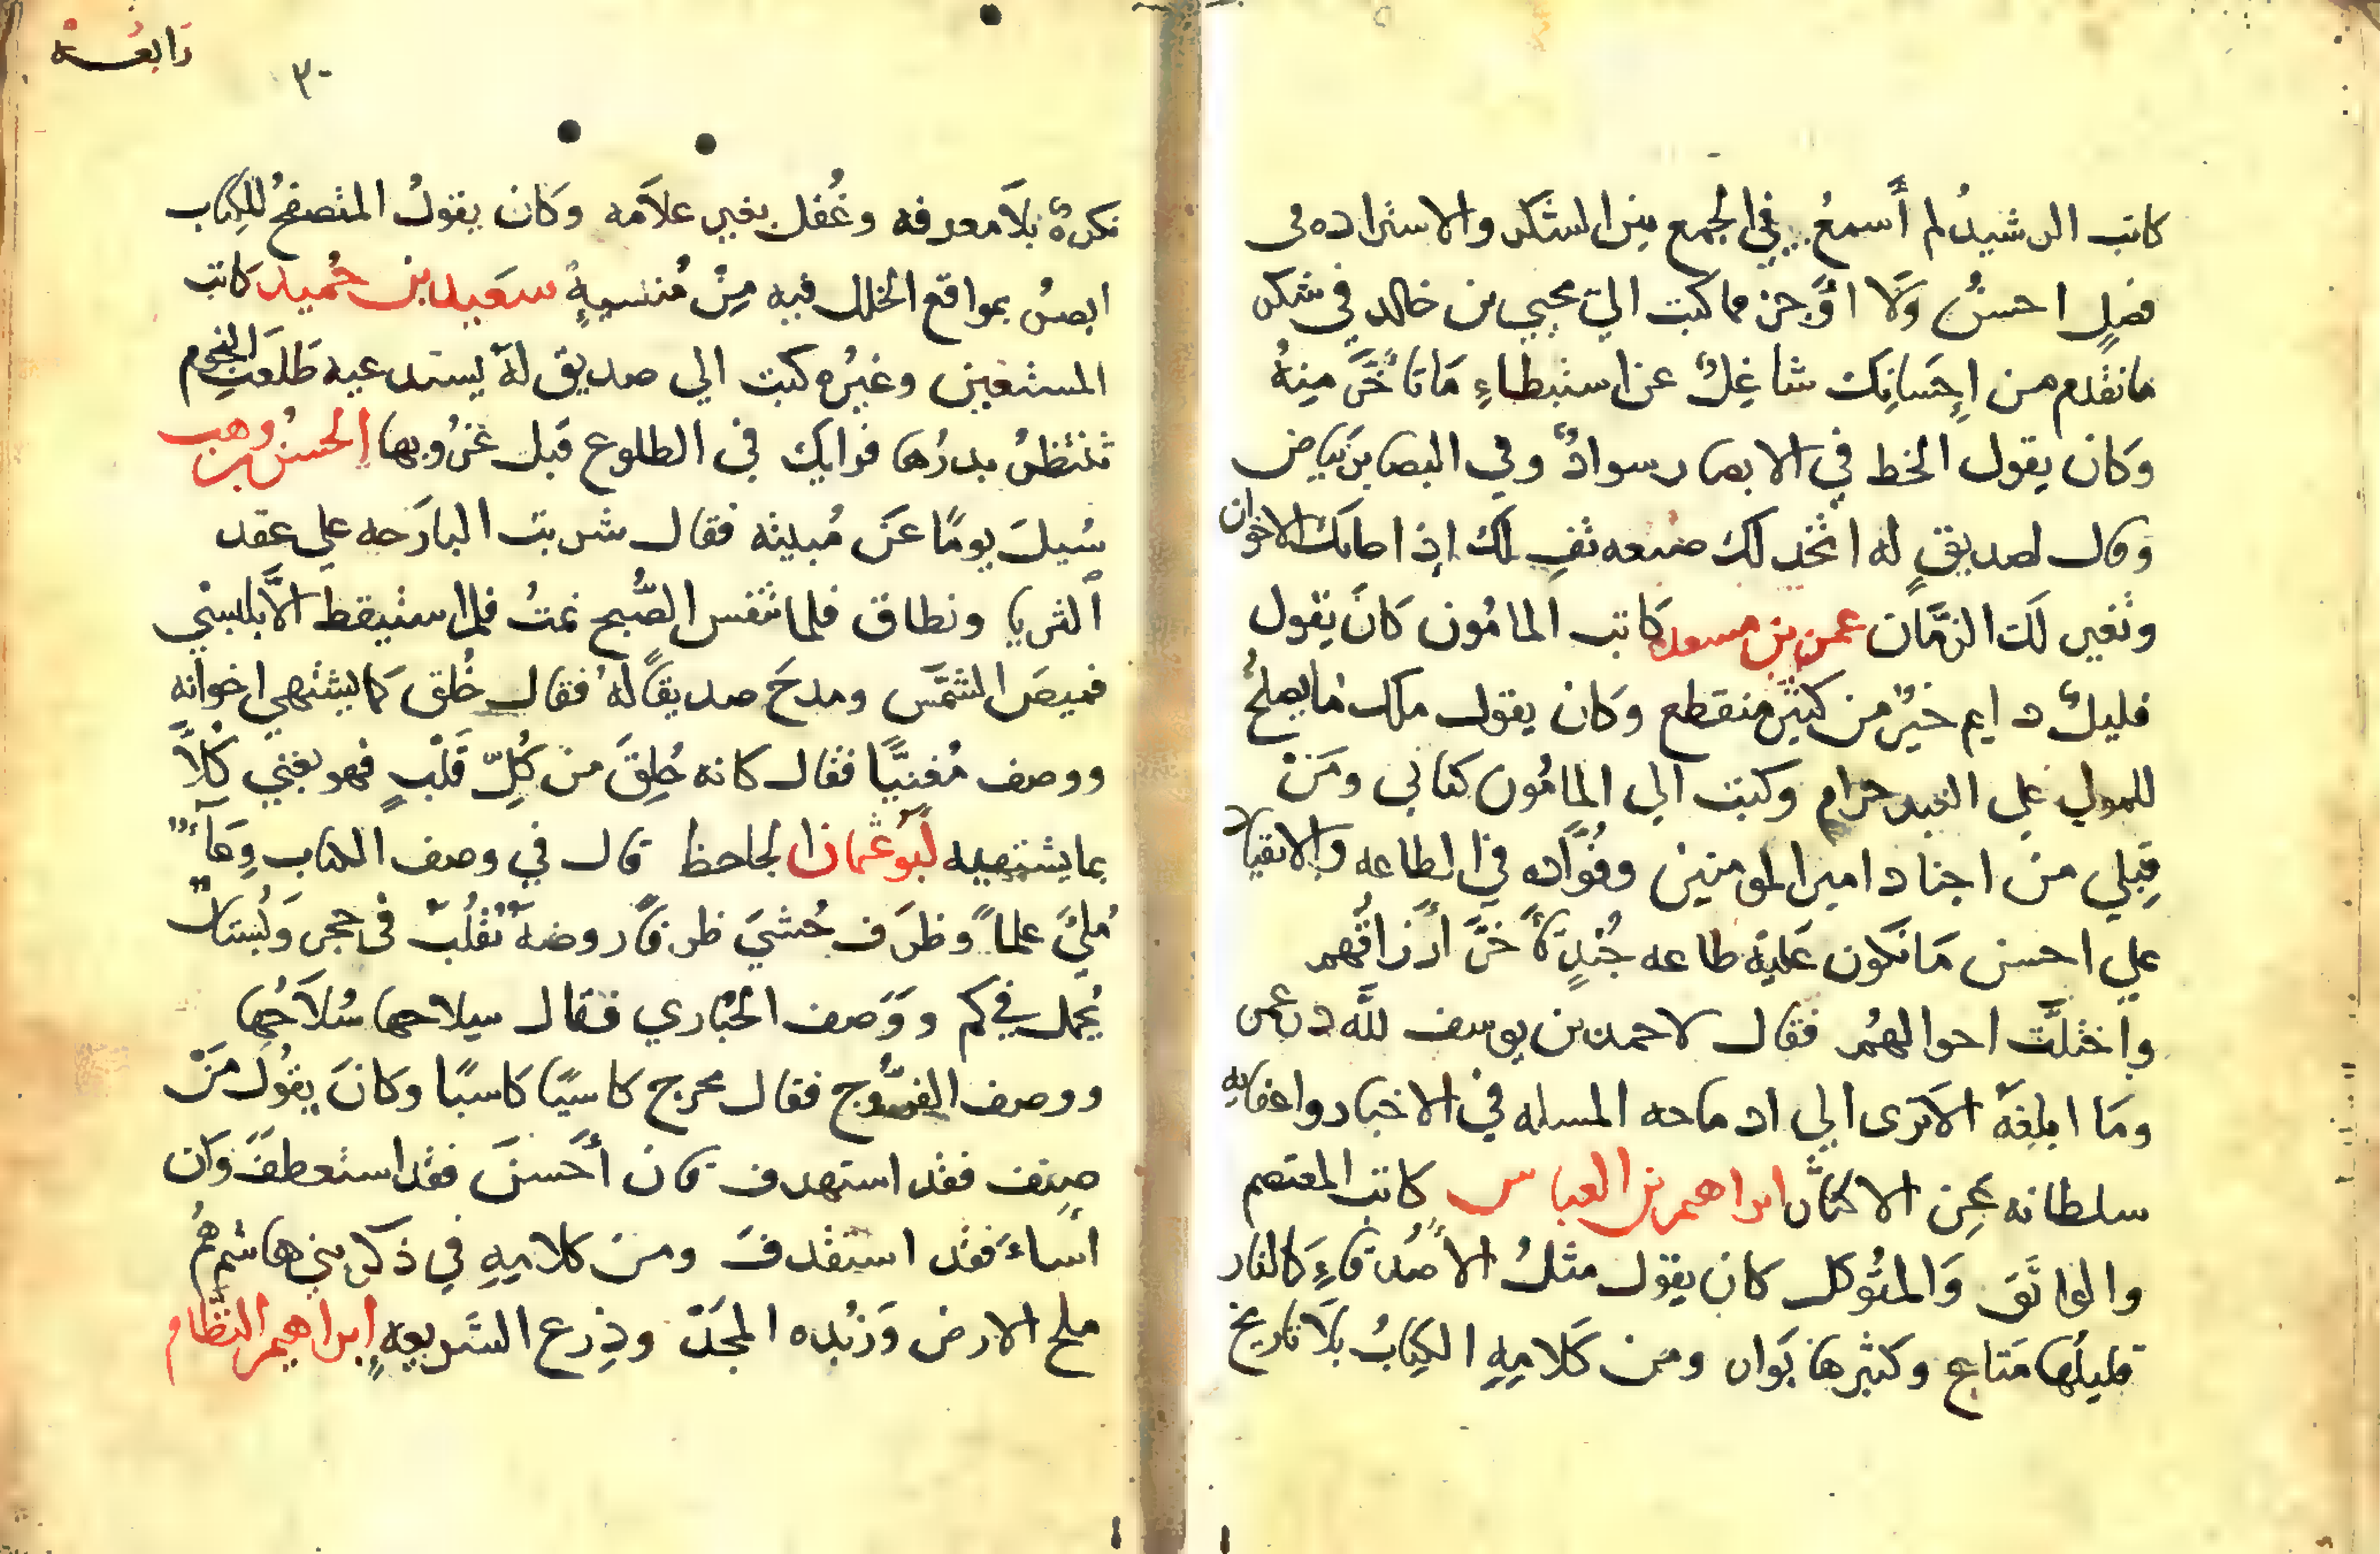 كاتب الرشيد لم أسمع في الجمع بين الشكر والاستزاده في
فصلٍ احسن ولا اوجز مما كتب الي يحيي بن خالد في شكر
ما تقدم من إحسانك شاغلٌ عن استبطاءِ ما تأخر منهُ
وكان يقول الخط في الابصار سوادٌ وفي البصاير بياض
وقال لصديقٍ له اتخذ لك ضيعه تفِ لك إذا خانك الاخوان
وتغير لك الزمان عمرو بن مسعده كاتب المامون كان يقول
قليلٌ دايم خيرٌ من كثير منقطع وكان يقول ملك ما يصلحُ
للمولي علي العبد حرام وكتب الي المامُون كتابي ومَنْ
قِبلي من اجناد امير المومنين وقُوّاده في الطاعه والانقياد
علي احسن ما تكون عليه طاعه جُندٍ تأخرَّ أرزاقهم
واختلّت احوالهُم فقال لاحمد بن يوسف لله در عمرو
وما ابلغهَ الا تري الي ادماجه المسله في الاخبار واعفايه
سلطانه عن الاكثار ابراهيم بن العباس كاتب المعتصم
والواثق وَالمتُوكل كان يقول مثلُ الاصدقاءِ كالنار
قليلُها متاع وكثيرها بَوار ومن كَلامِهِ الكِتابُ بلا تاريخ
رابعه
٣٠
نكرهٌ بلا معرفه وغُفل بغير علامه وكان يقولُ المتصفحُ للكِتاب
ابصرُ بمواقع الخلل فيه مِنْ مُنشيهِ سعيد بن حُميد كاتب
المستعين وغيرُه كتب الي صديق لهُ يستدعيه طَلعَتِ النجوم
تنتظرُ بدرُها فرايك في الطلوع قبل غرُوبها الحسن بن وهب
سُيلَ يومًا عَن مُبيته فقال شربت البارَحه علي عقد
الثريا ونطاق فلما تنفس الصُّبح نمتُ فلم استيقظ الا بلبسي
قميصَ الشمَّس ومدحَ صديقًا لهُ فقال خُلق كما يشتهي اخوانه
ووصف مُغنيًّا فقال كانه خُلِقَ من كُلّ قَلْبٍ فهو يغني كُلاًّ
بما يشتهيه أبو عثمان الجاحظ قال في وصف الكتاب وِعَآءٌ
مُلئَ علماً وظرف حُشيَ ظرفًا روضهٌ تُقلَبُ في حجر وَبُستانٌ
يُحمل في كم ووَصف الحُبَاري فقال سِلاحها سُلاَحُها
ووصف الفرّوج فقال يخرج كاسيًا كاسبًا وكانَ يقُول مَنْ
صنف فقد استهدف فان أحسنَ فقد استعطفَ وَان
اساءَ فقد استقدفَ ومن كلامِهِ في ذكر بني هاشم هُم
ملح الارض وَزبُده المجد وذِرع الشريعهِ إبراهيم النظّام